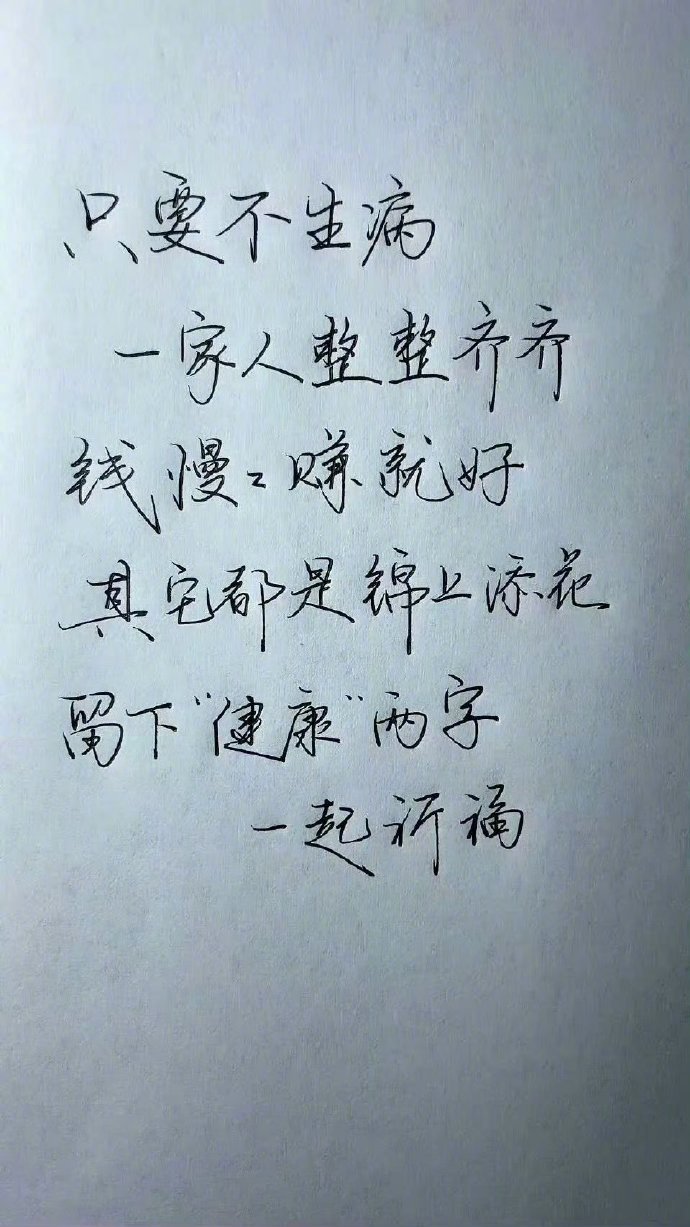 只要不生病
一家人整整齐齐
钱慢慢赚就好
其它都是锦上添花
留下“健康”两字
一起祈福